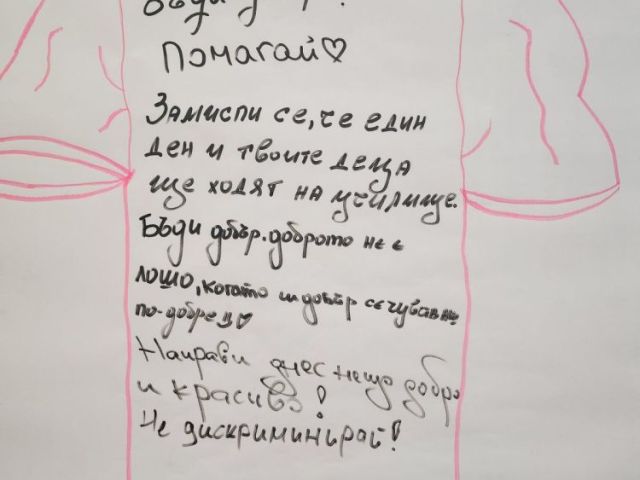 Бъди
Помагай♡
Замисли се, че един
ден и твоите деца
ще ходят на училище.
Бъди добър. доброто не е
лошо, когато си добър се чувстваш
по-добре!!♡
Направи днес нещо добро
и красиво!
Не дискриминирай!